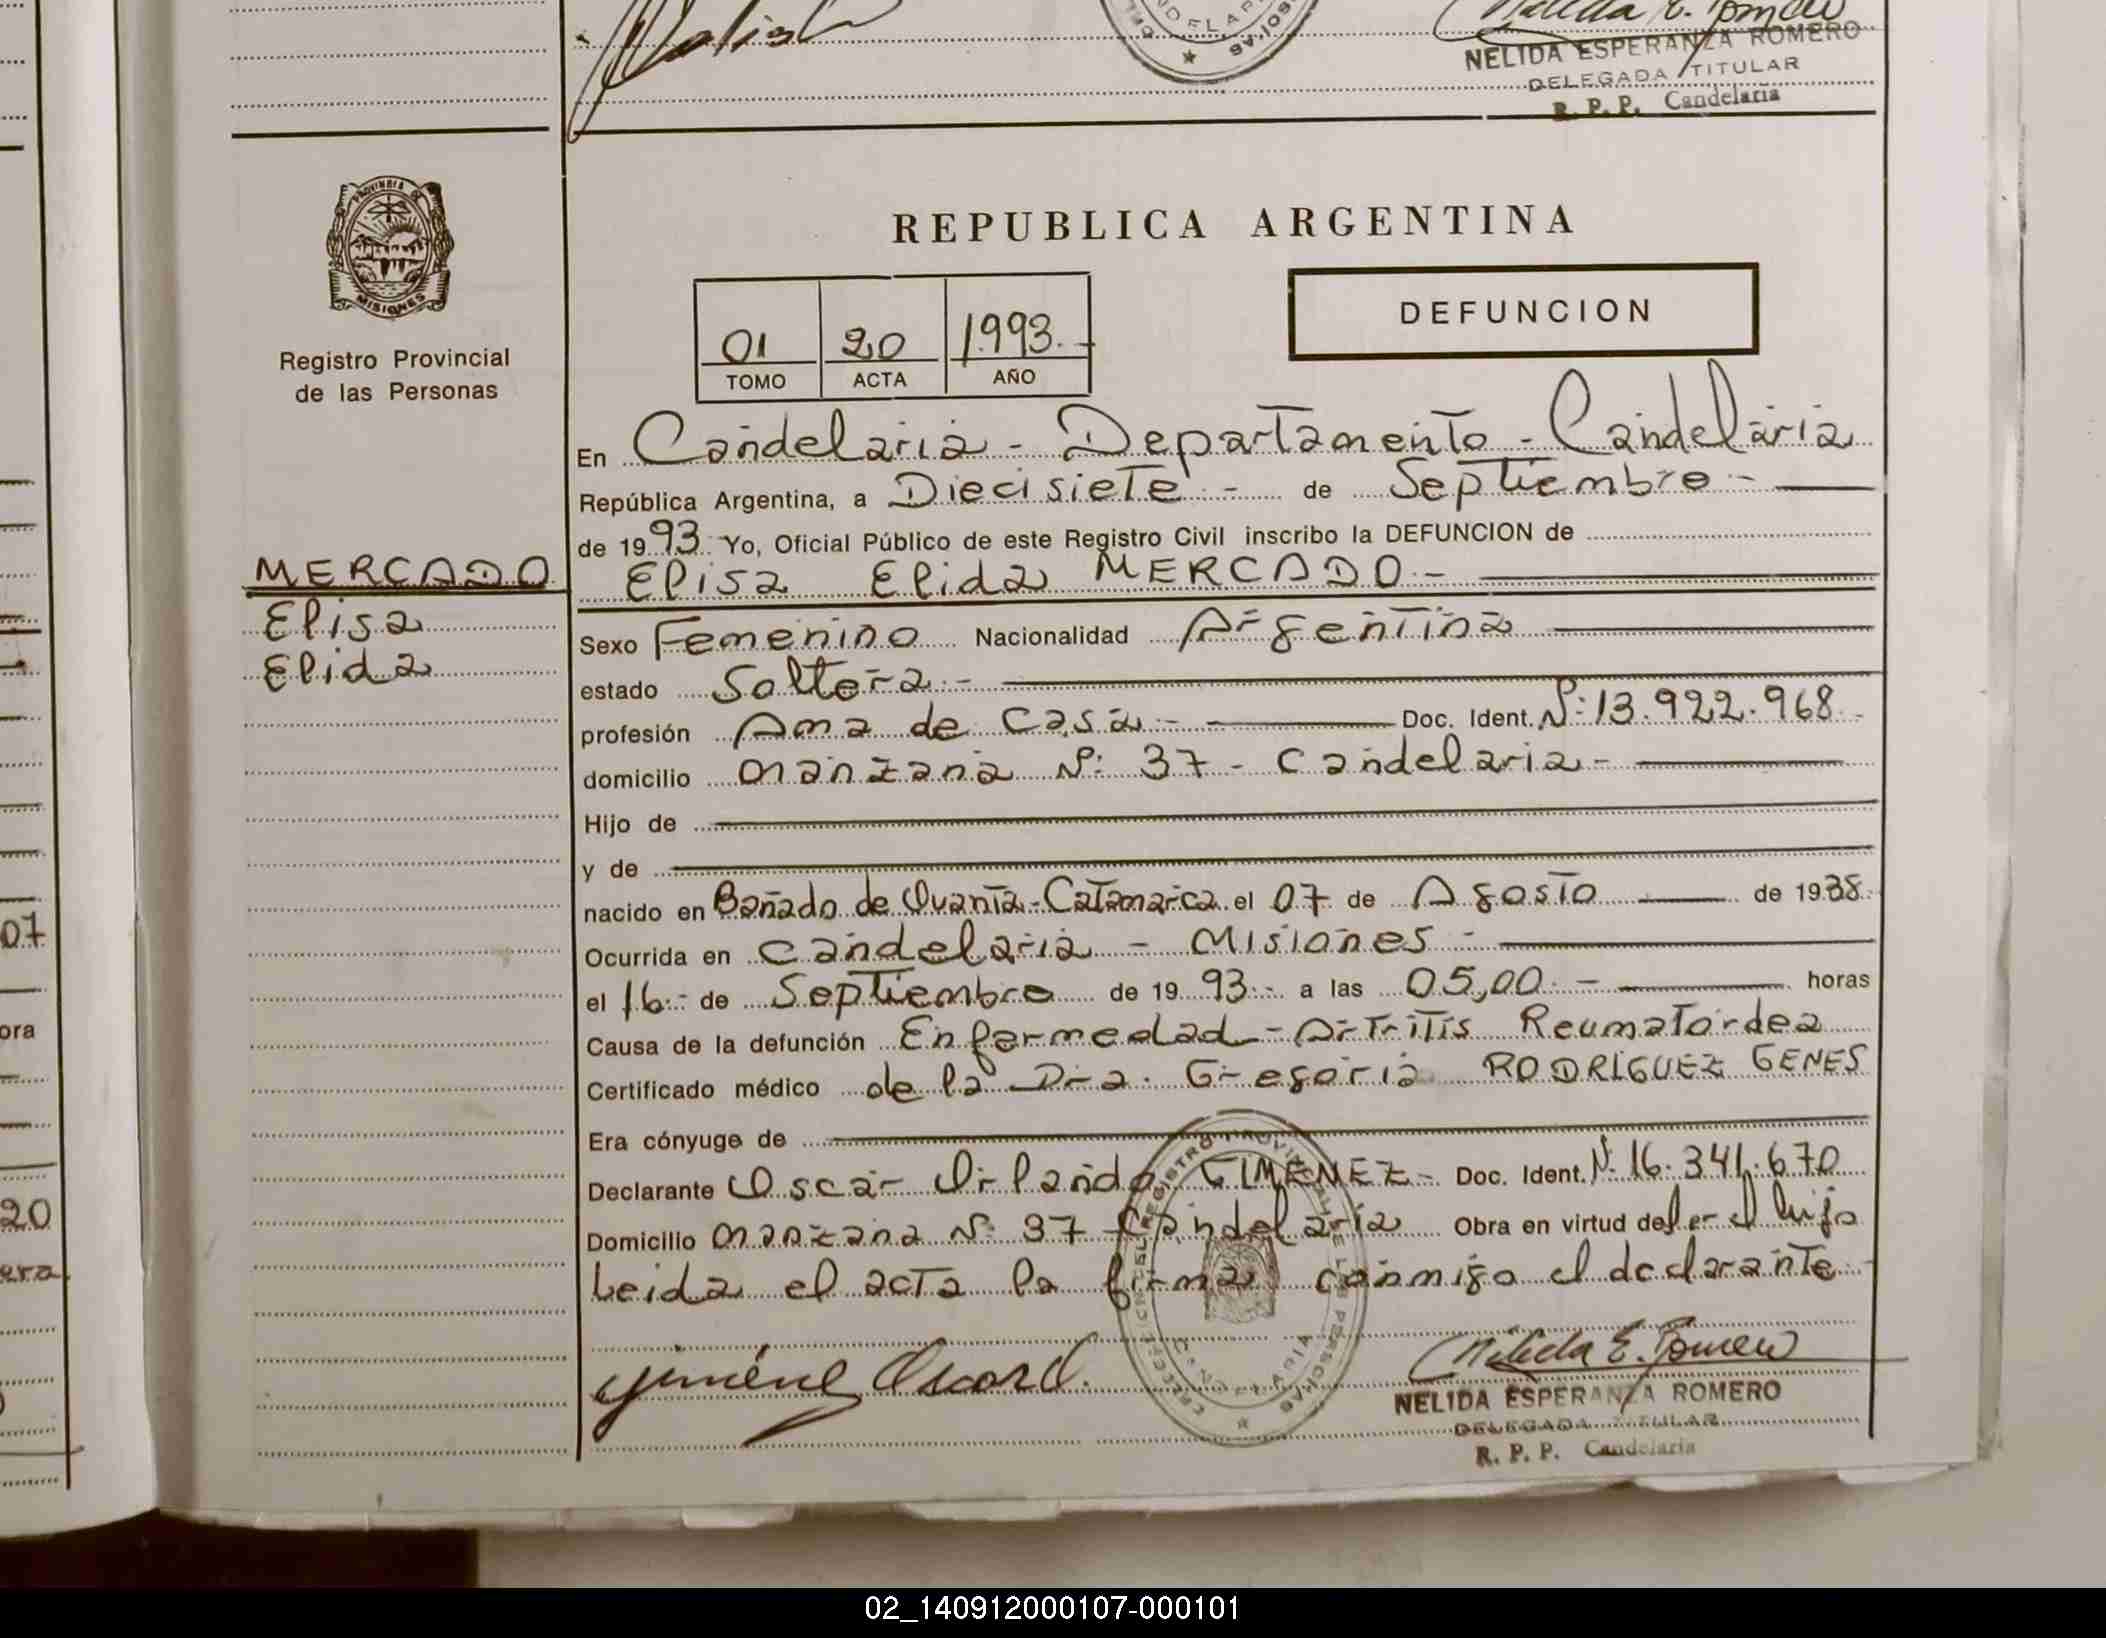 Nelida E. Romero
NELIDA ESPERANZA ROMERO
DELEGADA TITULAR
R. P. P. Candelaria
PROVINCIA DE
MISIONES
Registro Provincial
de las Personas
REPUBLICA ARGENTINA
DEFUNCION
01 20 1993.-
TOMO ACTA AÑO
En Candelaria - Departamento - Candelaria
República Argentina, a Diecisiete - de Septiembre -
de 1993. Yo, Oficial Público de este Registro Civil inscribo la DEFUNCION de
MERCADO
Elisa Elida MERCADO.-
Elisa
Elida
Sexo Femenino Nacionalidad Argentina
estado Soltera.-
profesión Ama de casa.- Doc. Ident. Nº: 13.922.968.-
domicilio Manzana Nº: 37 - Candelaria.-
Hijo de
y de
nacido en Bañado de Ovanta - Catamarca el 07 de Agosto de 1938.
Ocurrida en Candelaria - Misiones -
el 16.- de Septiembre de 1993.- a las 05,00.- horas
Causa de la defunción Enfermedad - Artritis Reumatoidea
Certificado médico de la Dra. Gregoria RODRIGUEZ GENES
Era cónyuge de
Declarante Oscar Orlando GIMENEZ - Doc. Ident. Nº 16.341.670
Domicilio Manzana Nº 37 Candelaria Obra en virtud de ser el hijo
Leida el acta la firma conmigo el declarante.-
Giménez Oscar O.
Nelida E. Romero
NELIDA ESPERANZA ROMERO
DELEGADA TITULAR
R. P. P. Candelaria
07
ora
20
era
02_140912000107-000101